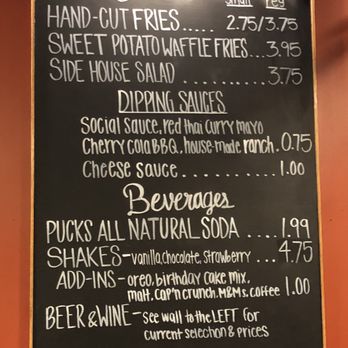 small reg
HAND-CUT FRIES..... 2.75/3.75
SWEET POTATO WAFFLE FRIES... 3.95
SIDE HOUSE SALAD .......... 3.75
DIPPING SAUCES
Social sauce, red thai curry mayo
Cherry cola BBQ, house-made ranch. 0.75
Cheese sauce .......... 1.00
Beverages
PUCKS ALL NATURAL SODA .... 1.99
SHAKES-vanilla, chocolate, strawberry ... 4.75
ADD-INS-oreo, birthday cake mix,
malt, cap'n crunch, M&Ms, coffee 1.00
BEER & WINE - see wall to the LEFT for
current selection & prices